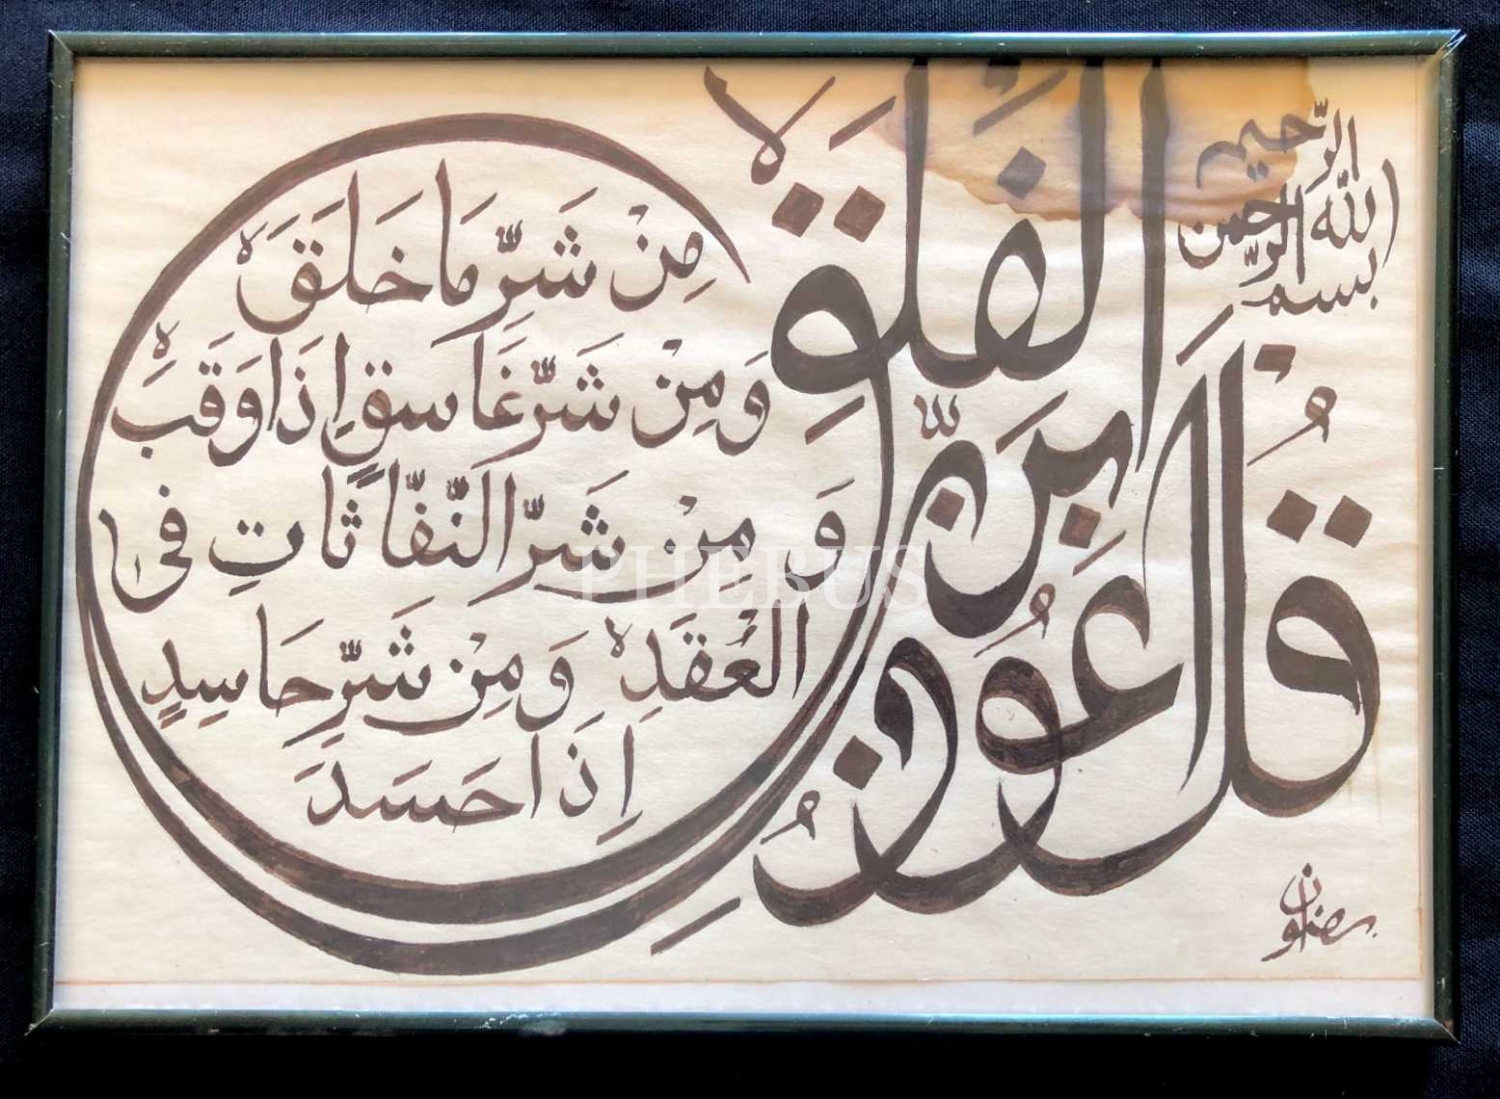 بسم الله الرحمن الرحيم
قُلْ أَعُوذُ بِرَبِّ الْفَلَقِ لا
مِنْ شَرِّ مَا خَلَقَ ه
وَ مِنْ شَرِّ غَاسِقٍ اِذَا وَقَبَ ه
وَ مِنْ شَرِّ النَّفَّاثَاتِ فى
الْعُقَدِ ه وَ مِنْ شَرِّ حَاسِدٍ
اِذَا حَسَدَ
PHEBUS